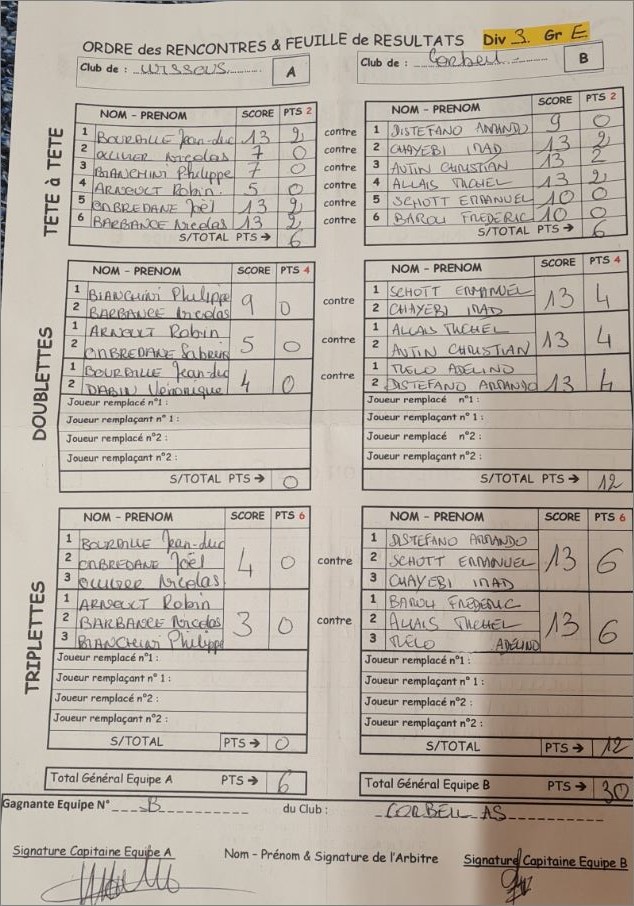 ORDRE des RENCONTRES & FEUILLE de RESULTATS Div 3 Gr E
Club de : WISSOUS A
Club de : Corbeil B
TETE à TETE
NOM - PRENOM SCORE PTS 2 NOM - PRENOM SCORE PTS 2
1 BOURAILLE Jean-duc 13 2 contre 1 DISTEFANO ARMANDO 9 0
2 OLLIVIER Nicolas 7 0 contre 2 CHAYEBI IMAD 13 2
3 BIANCHINI Philippe 7 0 contre 3 AUTIN CHRISTIAN 13 2
4 ARNOULT Robin 5 0 contre 4 ALLAIS MICHEL 13 2
5 ONBREDANE Joël 13 2 contre 5 SCHOTT EMMANUEL 10 0
6 BARBANCE Nicolas 13 2 contre 6 BAROU FREDERIC 10 0
S/TOTAL PTS → 6 S/TOTAL PTS → 6
DOUBLETTES
NOM - PRENOM SCORE PTS 4 NOM - PRENOM SCORE PTS 4
1 BIANCHINI Philippe 9 0 contre 1 SCHOTT EMMANUEL 13 4
2 BARBANCE Nicolas 2 CHAYEBI IMAD
1 ARNOULT Robin 5 0 contre 1 ALLAIS MICHEL 13 4
2 ONBREDANE Sabrina 2 AUTIN CHRISTIAN
1 BOURAILLE Jean-duc 4 0 contre 1 MELO ADELINO 13 4
2 DABIN Véronique 2 DISTEFANO ARMANDO
Joueur remplacé n°1 : Joueur remplacé n°1 :
Joueur remplaçant n° 1 : Joueur remplaçant n° 1 :
Joueur remplacé n°2 : Joueur remplacé n°2 :
Joueur remplaçant n°2 : Joueur remplaçant n°2 :
S/TOTAL PTS → 0 S/TOTAL PTS → 12
TRIPLETTES
NOM - PRENOM SCORE PTS 6 NOM - PRENOM SCORE PTS 6
1 BOURAILLE Jean-duc 4 0 contre 1 DISTEFANO ARMANDO 13 6
2 ONBREDANE Joël 2 SCHOTT EMMANUEL
3 OLLIVIER Nicolas 3 CHAYEBI IMAD
1 ARNOULT Robin 3 0 contre 1 BAROU FREDERIC 13 6
2 BARBANCE Nicolas 2 ALLAIS MICHEL
3 BIANCHINI Philippe 3 MELO ADELINO
Joueur remplacé n°1 : Joueur remplacé n°1 :
Joueur remplaçant n° 1 : Joueur remplaçant n° 1 :
Joueur remplacé n°2 : Joueur remplacé n°2 :
Joueur remplaçant n°2 : Joueur remplaçant n°2 :
S/TOTAL PTS → 0 S/TOTAL PTS → 12
Total Général Equipe A PTS → 6 Total Général Equipe B PTS → 30
Gagnante Equipe N° B du Club : CORBEIL AS
Signature Capitaine Equipe A Nom - Prénom & Signature de l'Arbitre Signature Capitaine Equipe B